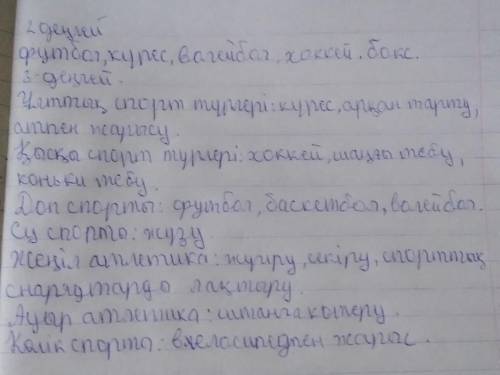 2 деңгей
футбол, күрес, валейбол, хоккей, бокс.
3-деңгей.
Ұлттық спорт түрлері: күрес, арқан тарту,
атпен жарысу.
Қысқа спорт түрлері: хоккей, шаңғы тебу,
коньки тебу.
Доп спорты: футбол, баскетбол, валейбол.
Су спорты: жүзу.
Жеңіл атлетика: жүгіру, секіру, спорттық
снарядтарды лақтыру.
Ауыр атлетика: штанга көтеру.
Көлік спорты: велосипедпен жарыс.